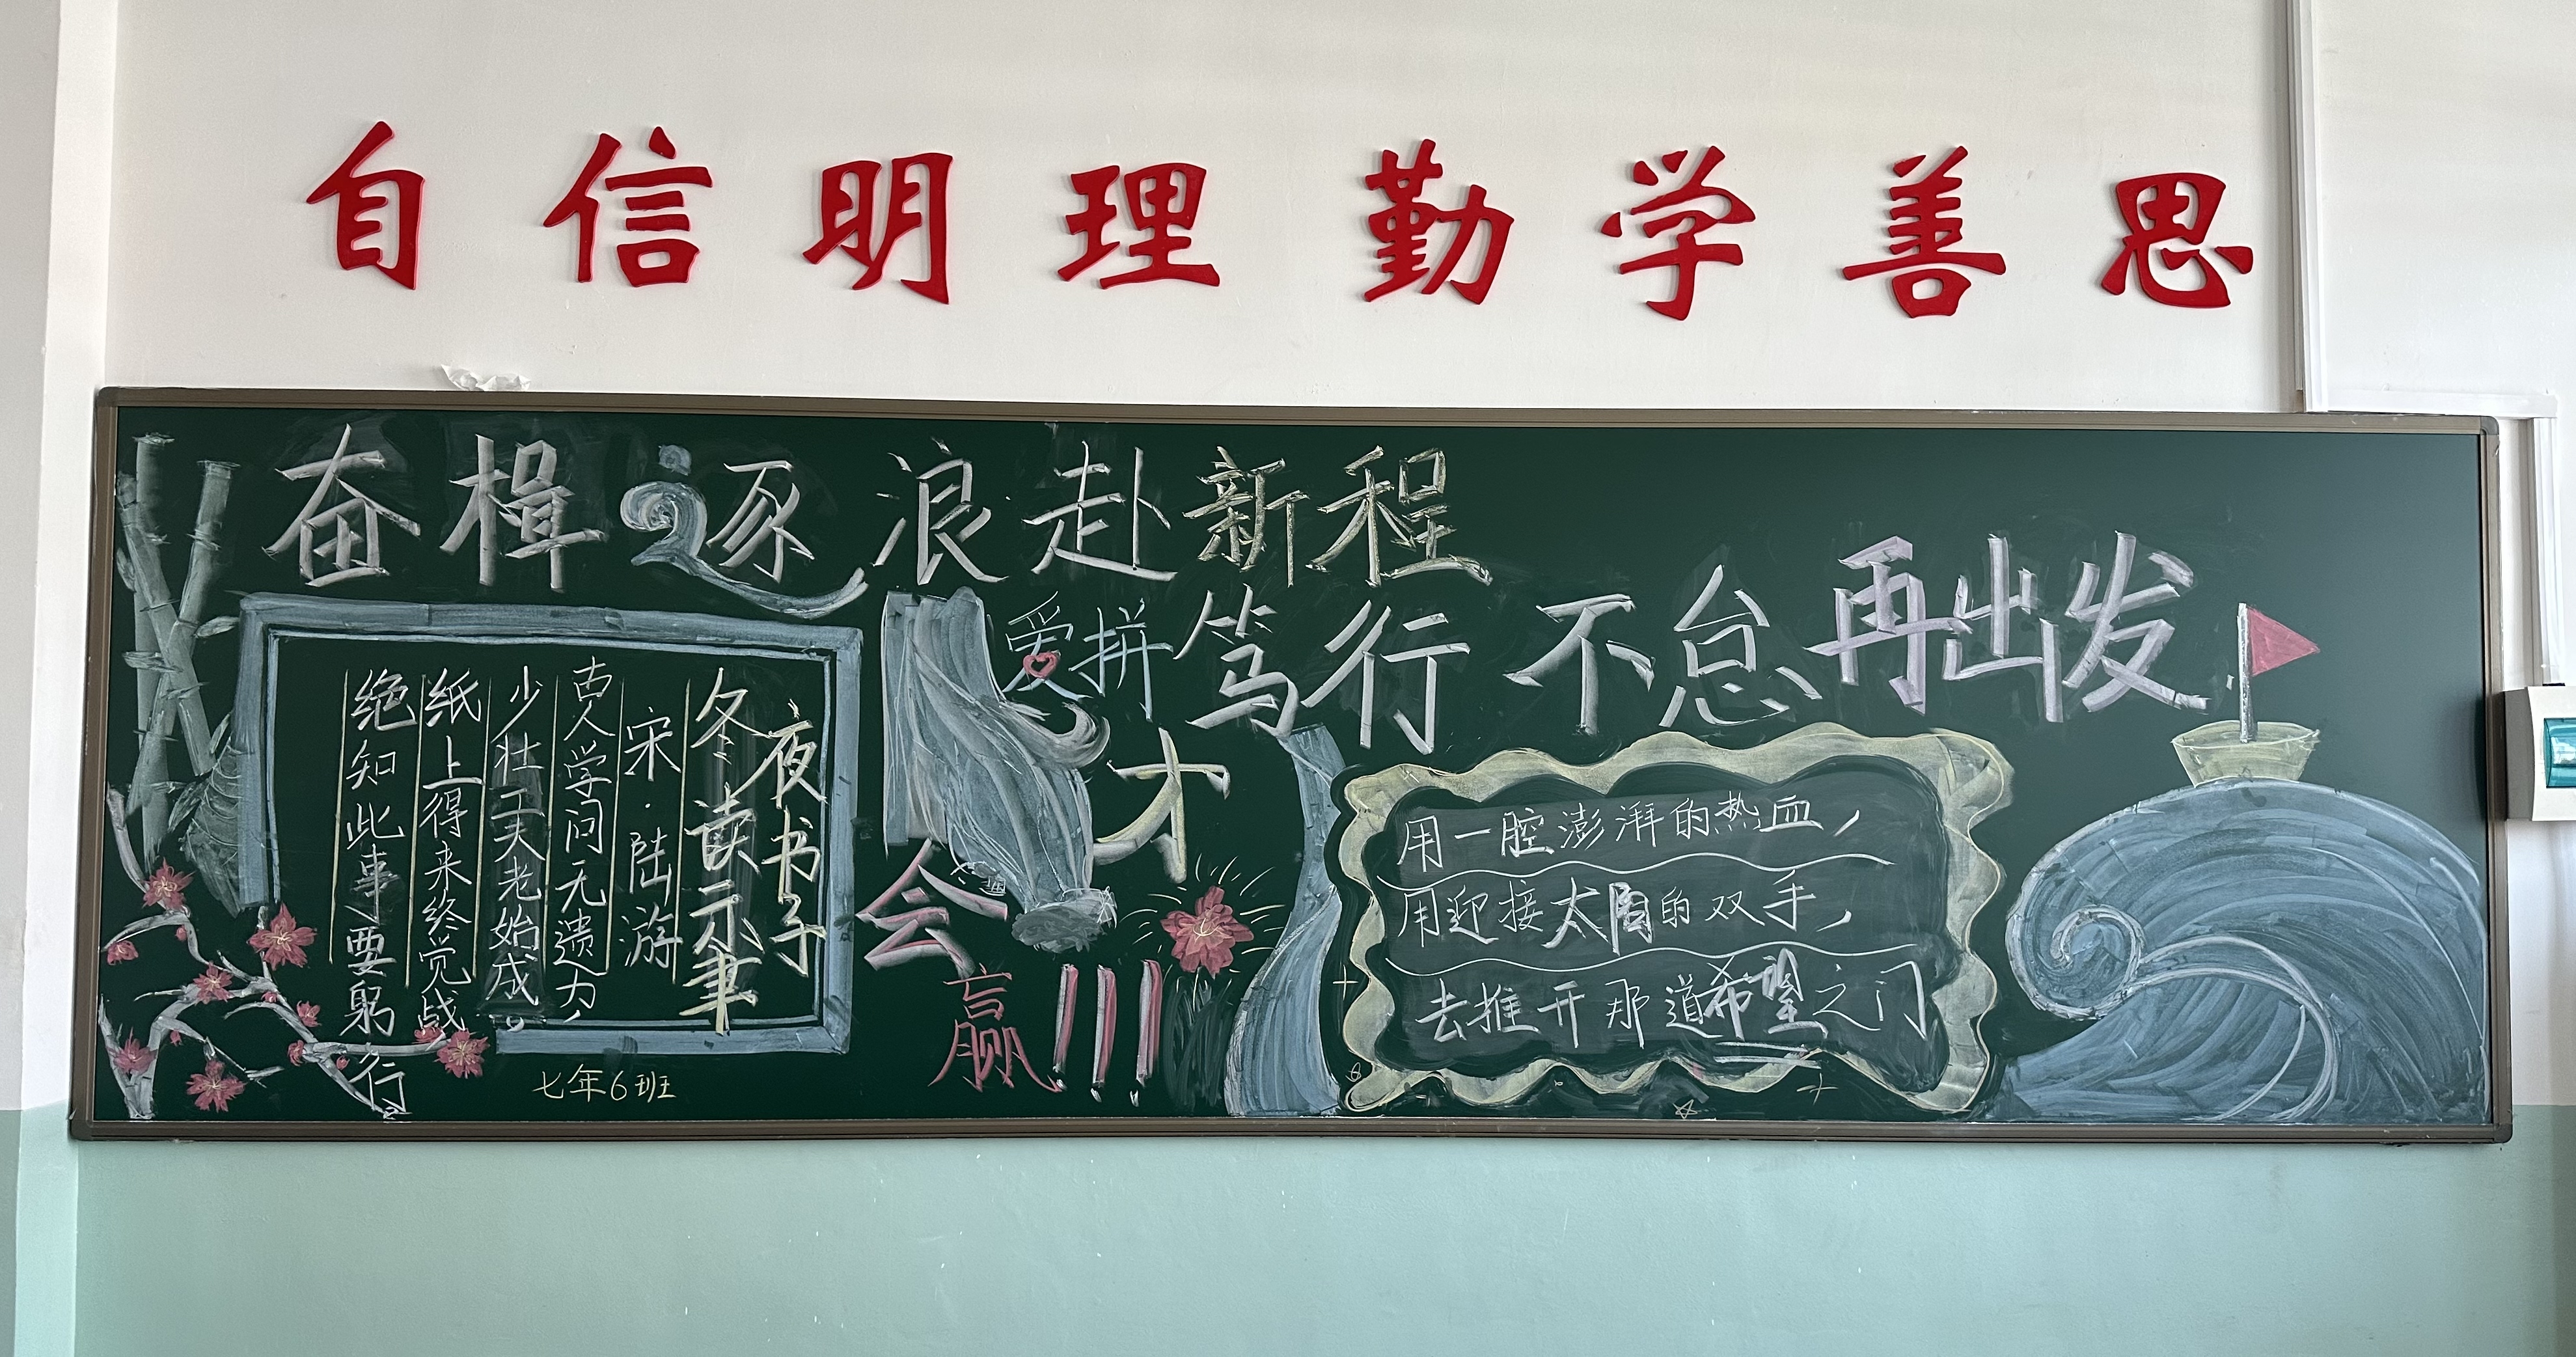 自信明理勤学善思
奋楫逐浪赴新程
笃行不怠再出发
夜书子
冬读示聿
宋·陆游
古人学问无遗力,
少壮工夫老始成。
纸上得来终觉战
绝知此事要躬行
七年6班
爱拼
才
会
赢!!!
用一腔澎湃的热血,
用迎接太阳的双手,
去推开那道希望之门